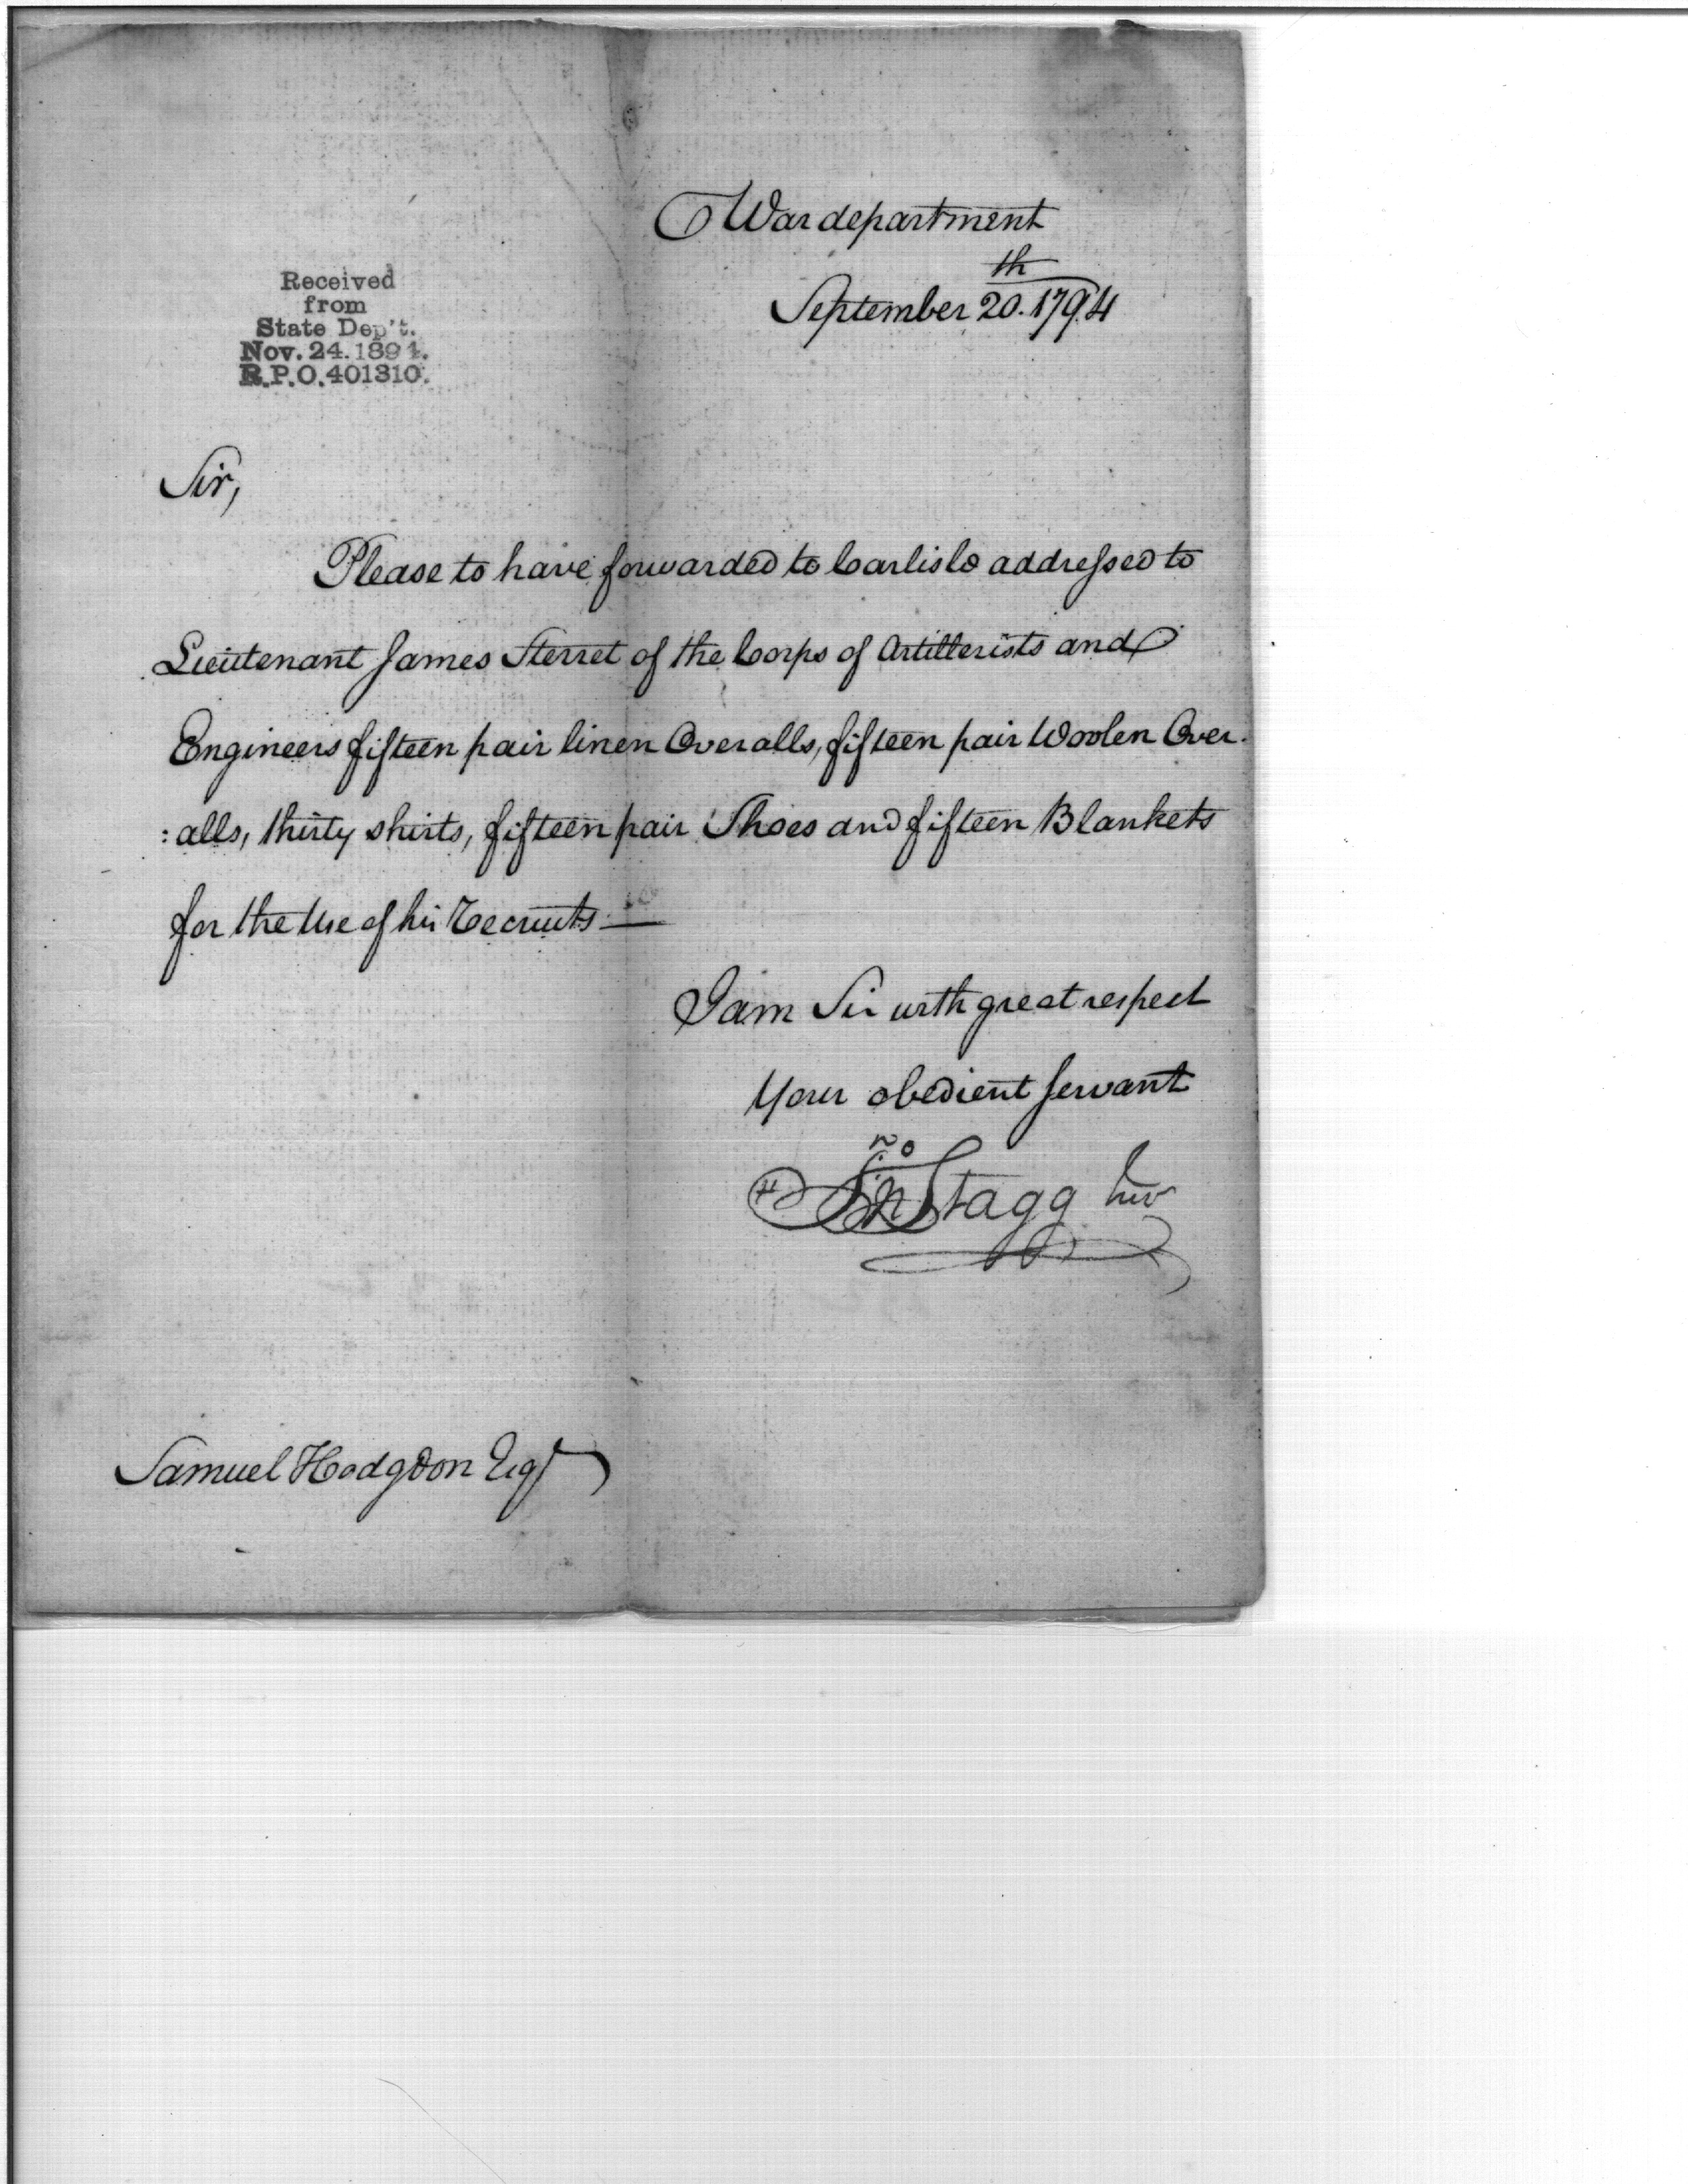 War department
September 20th. 1794
Received
from
State Dep't.
Nov. 24. 1894.
R.P.O. 401310.
Sir,
Please to have forwarded to Carlisle addressed to
Lieutenant James Sterret of the Corps of Artillerists and
Engineers fifteen pair linen Overalls, fifteen pair Woolen Over
:alls, thirty shirts, fifteen pair Shoes and fifteen Blankets
for the Use of his Recruits —
I am Sir with great respect
Your obedient servant
Jno Stagg Junr
Samuel Hodgdon Esqr